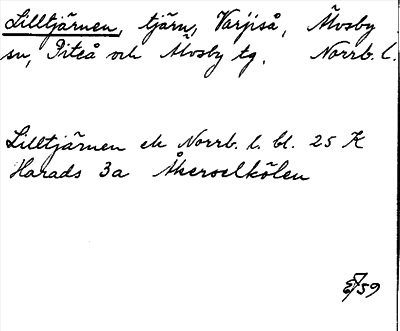 Lilltjärnen, tjärn, Varjiså, Älvsby
sn, Piteå och Älvsby tg. Norrb. l.
Lilltjärnen ek Norrb. l. bl. 25 K
Harads 3a Åkerselkölen
59